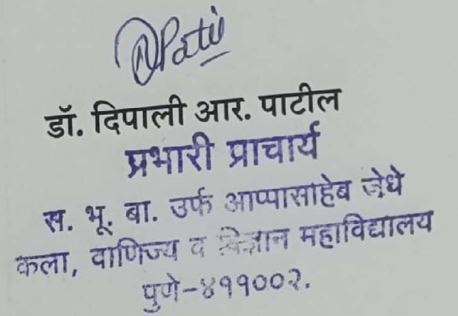 DPatil
डॉ. दिपाली आर. पाटील
प्रभारी प्राचार्य
स. भू. बा. उर्फ आप्पासाहेब जेधे
कला, वाणिज्य व विज्ञान महाविद्यालय
पुणे-४११००२.